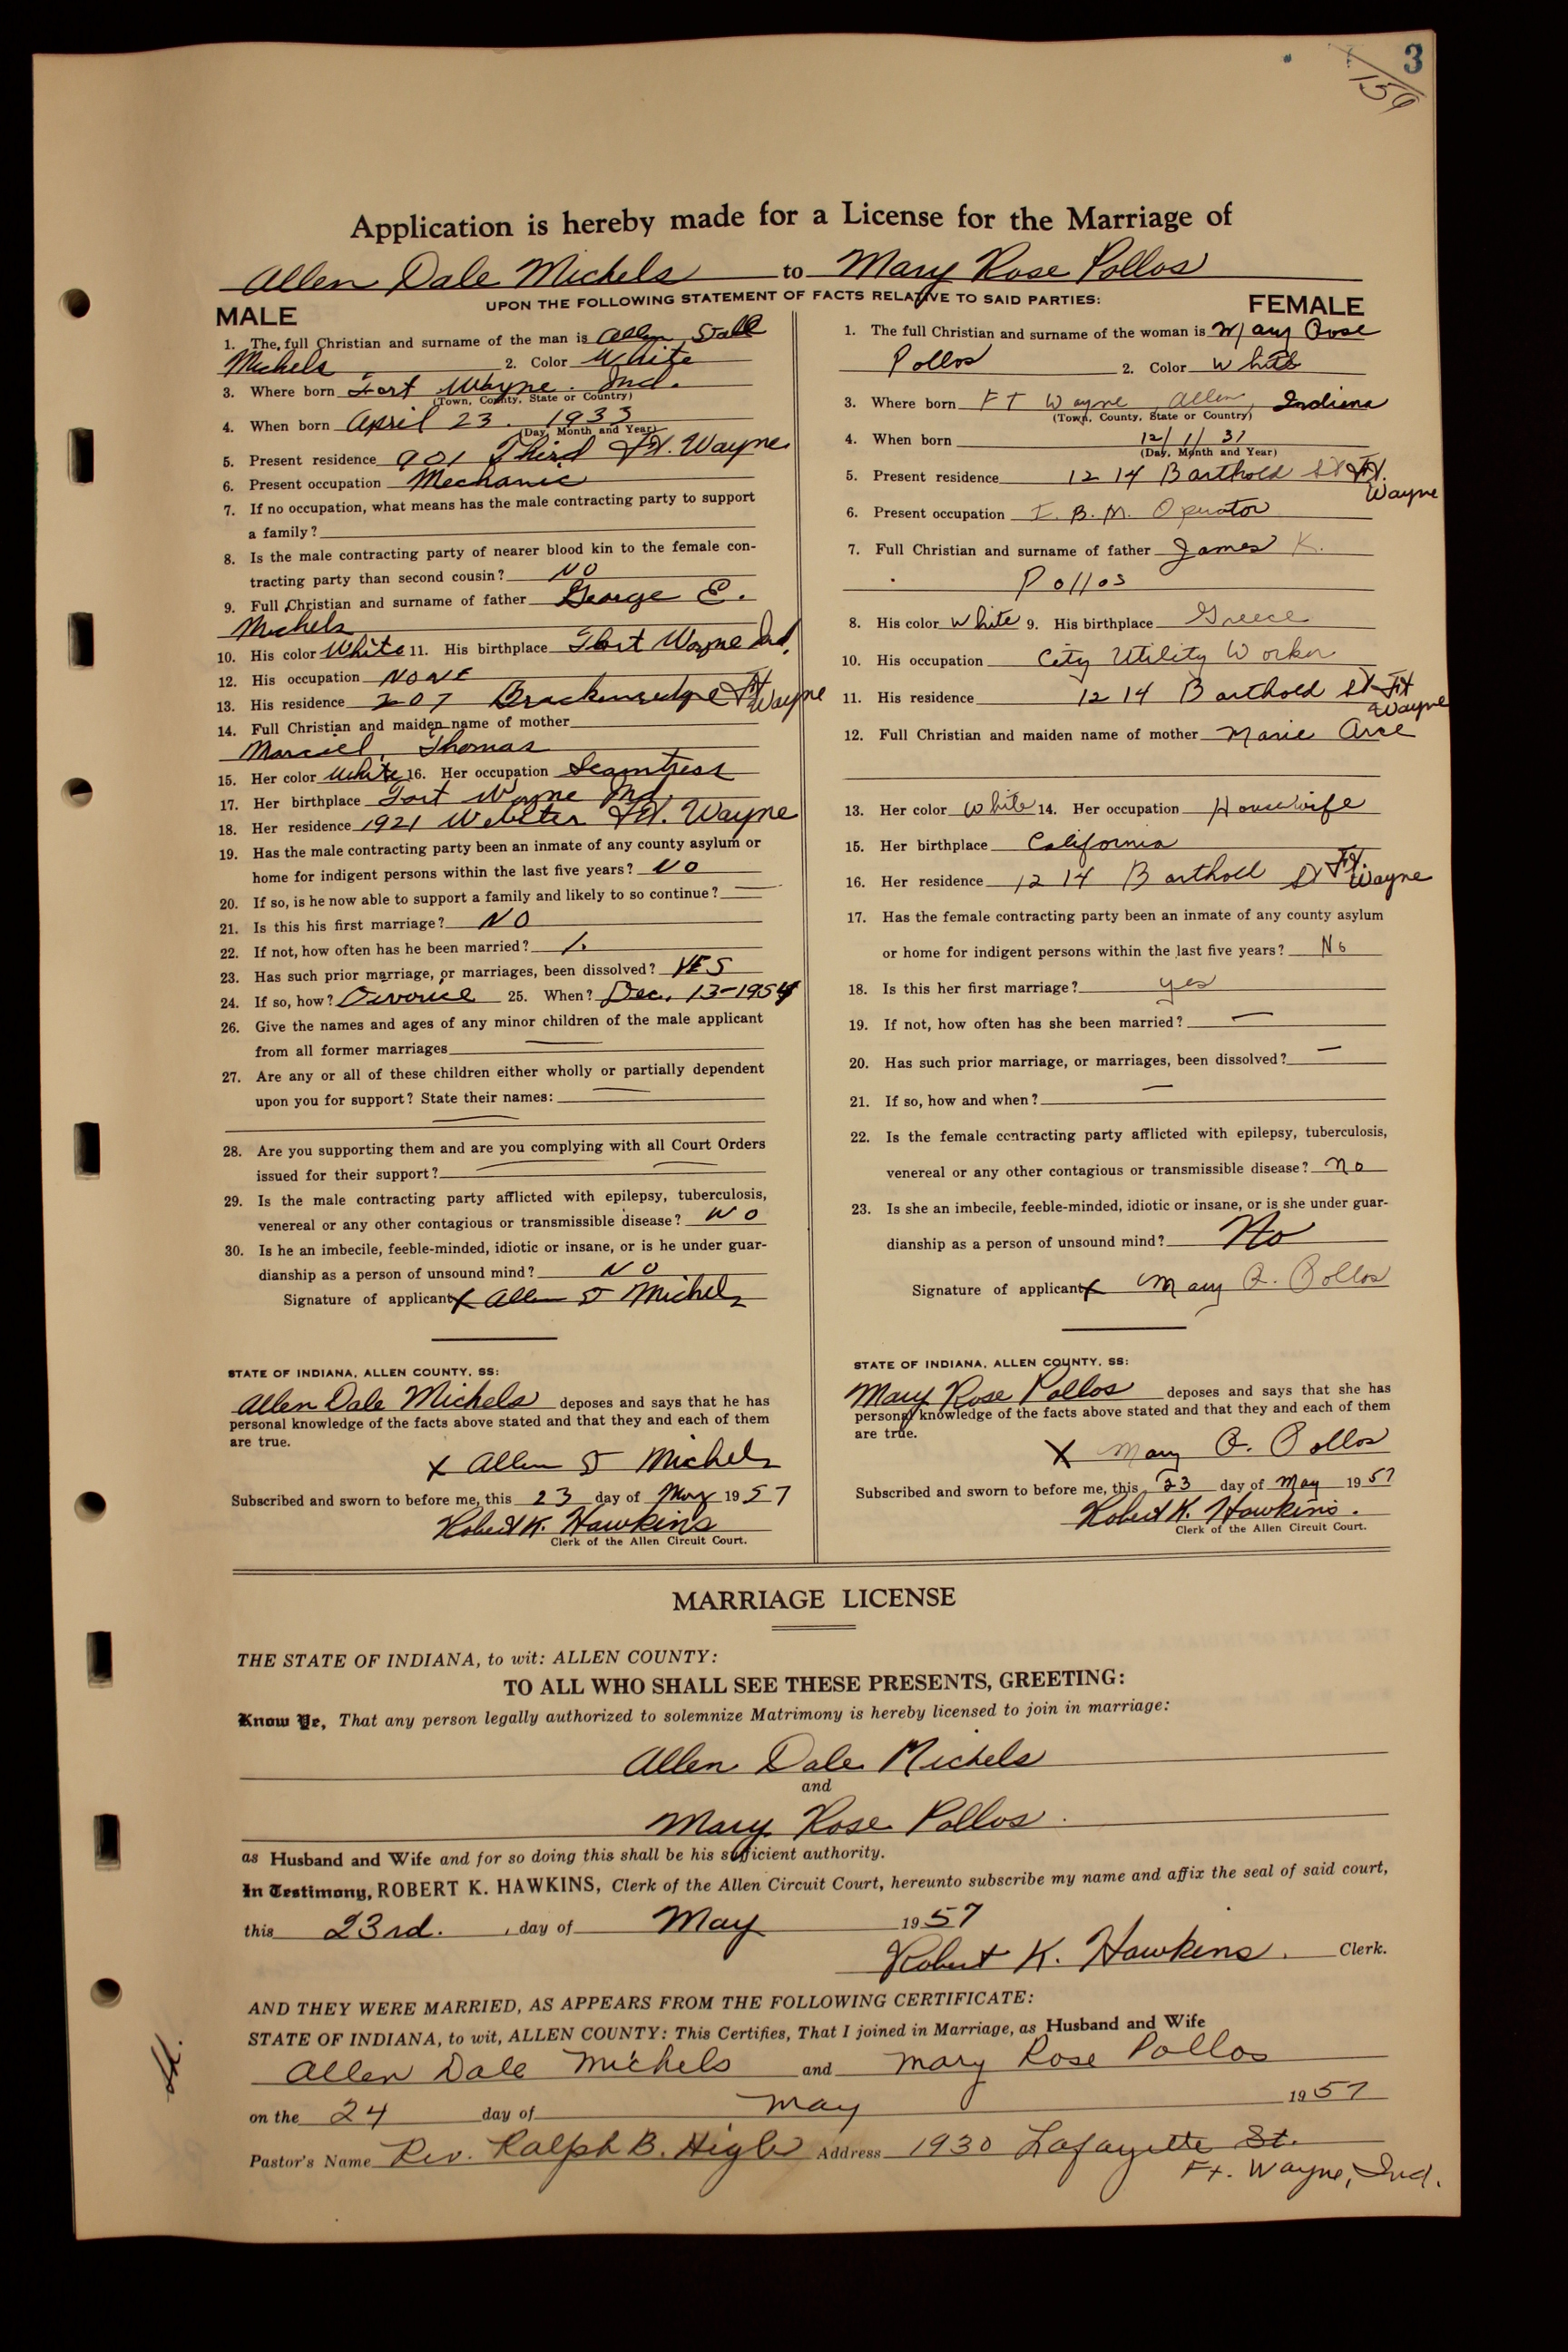 3
159
Application is hereby made for a License for the Marriage of
Allen Dale Michels to Mary Rose Pollos
UPON THE FOLLOWING STATEMENT OF FACTS RELATIVE TO SAID PARTIES:
MALE
1. The full Christian and surname of the man is Allen
Michels 2. Color White
3. Where born Fort Wayne. Ind.
(Town, County, State or Country)
4. When born April 23. 1933
(Day, Month and Year)
5. Present residence 901 Third Ft. Wayne
6. Present occupation Mechanic
7. If no occupation, what means has the male contracting party to support
a family?
8. Is the male contracting party of nearer blood kin to the female con-
tracting party than second cousin? NO
9. Full Christian and surname of father George E.
Michels
10. His color White 11. His birthplace Fort Wayne Ind.
12. His occupation NONE
13. His residence 207 Brackenridge Ft Wayne
14. Full Christian and maiden name of mother
Thomas
15. Her color White 16. Her occupation Seamtress
17. Her birthplace Fort Wayne Ind.
18. Her residence 1921 Webster Ft. Wayne
19. Has the male contracting party been an inmate of any county asylum or
home for indigent persons within the last five years? NO
20. If so, is he now able to support a family and likely to so continue? —
21. Is this his first marriage? NO
22. If not, how often has he been married? 1.
23. Has such prior marriage, or marriages, been dissolved? YES
24. If so, how? Divorce 25. When? Dec. 13-1954
26. Give the names and ages of any minor children of the male applicant
from all former marriages —
27. Are any or all of these children either wholly or partially dependent
upon you for support? State their names: —
—
28. Are you supporting them and are you complying with all Court Orders
issued for their support? — —
29. Is the male contracting party afflicted with epilepsy, tuberculosis,
venereal or any other contagious or transmissible disease? NO
30. Is he an imbecile, feeble-minded, idiotic or insane, or is he under guar-
dianship as a person of unsound mind? NO
Signature of applicant X Allen D Michels
STATE OF INDIANA, ALLEN COUNTY, SS:
Allen Dale Michels deposes and says that he has
personal knowledge of the facts above stated and that they and each of them
are true.
X Allen D Michels
Subscribed and sworn to before me, this 23 day of May 1957
Robert K. Hawkins
Clerk of the Allen Circuit Court.
FEMALE
1. The full Christian and surname of the woman is Mary Rose
Pollos 2. Color White
3. Where born FT Wayne Allen, Indiana
(Town, County, State or Country)
4. When born 12/1/31
(Day, Month and Year)
5. Present residence 1214 Barthold St Ft.
Wayne
6. Present occupation I. B. M. Operator
7. Full Christian and surname of father James K.
Pollos
8. His color White 9. His birthplace Greece
10. His occupation City Utility Worker
11. His residence 1214 Barthold St Ft
Wayne
12. Full Christian and maiden name of mother Marie Arce
13. Her color White 14. Her occupation Housewife
15. Her birthplace California
16. Her residence 1214 Barthold St Ft. Wayne
17. Has the female contracting party been an inmate of any county asylum
or home for indigent persons within the last five years? No
18. Is this her first marriage? yes
19. If not, how often has she been married? —
20. Has such prior marriage, or marriages, been dissolved? —
21. If so, how and when? —
22. Is the female contracting party afflicted with epilepsy, tuberculosis,
venereal or any other contagious or transmissible disease? no
23. Is she an imbecile, feeble-minded, idiotic or insane, or is she under guar-
dianship as a person of unsound mind? No
Signature of applicant X Mary R. Pollos
STATE OF INDIANA, ALLEN COUNTY, SS:
Mary Rose Pollos deposes and says that she has
personal knowledge of the facts above stated and that they and each of them
are true.
X Mary R. Pollos
Subscribed and sworn to before me, this 23 day of May 1957
Robert K. Hawkins.
Clerk of the Allen Circuit Court.
MARRIAGE LICENSE
THE STATE OF INDIANA, to wit: ALLEN COUNTY:
TO ALL WHO SHALL SEE THESE PRESENTS, GREETING:
Know Ye, That any person legally authorized to solemnize Matrimony is hereby licensed to join in marriage:
Allen Dale Michels
and
Mary Rose Pollos.
as Husband and Wife and for so doing this shall be his sufficient authority.
In Testimony, ROBERT K. HAWKINS, Clerk of the Allen Circuit Court, hereunto subscribe my name and affix the seal of said court,
this 23rd. day of May 1957
Robert K. Hawkins. Clerk.
AND THEY WERE MARRIED, AS APPEARS FROM THE FOLLOWING CERTIFICATE:
STATE OF INDIANA, to wit, ALLEN COUNTY: This Certifies, That I joined in Marriage, as Husband and Wife
Allen Dale Michels and Mary Rose Pollos
on the 24 day of May 1957
Pastor's Name Rev. Ralph B. Higle Address 1930 Lafayette St.
Ft. Wayne, Ind.